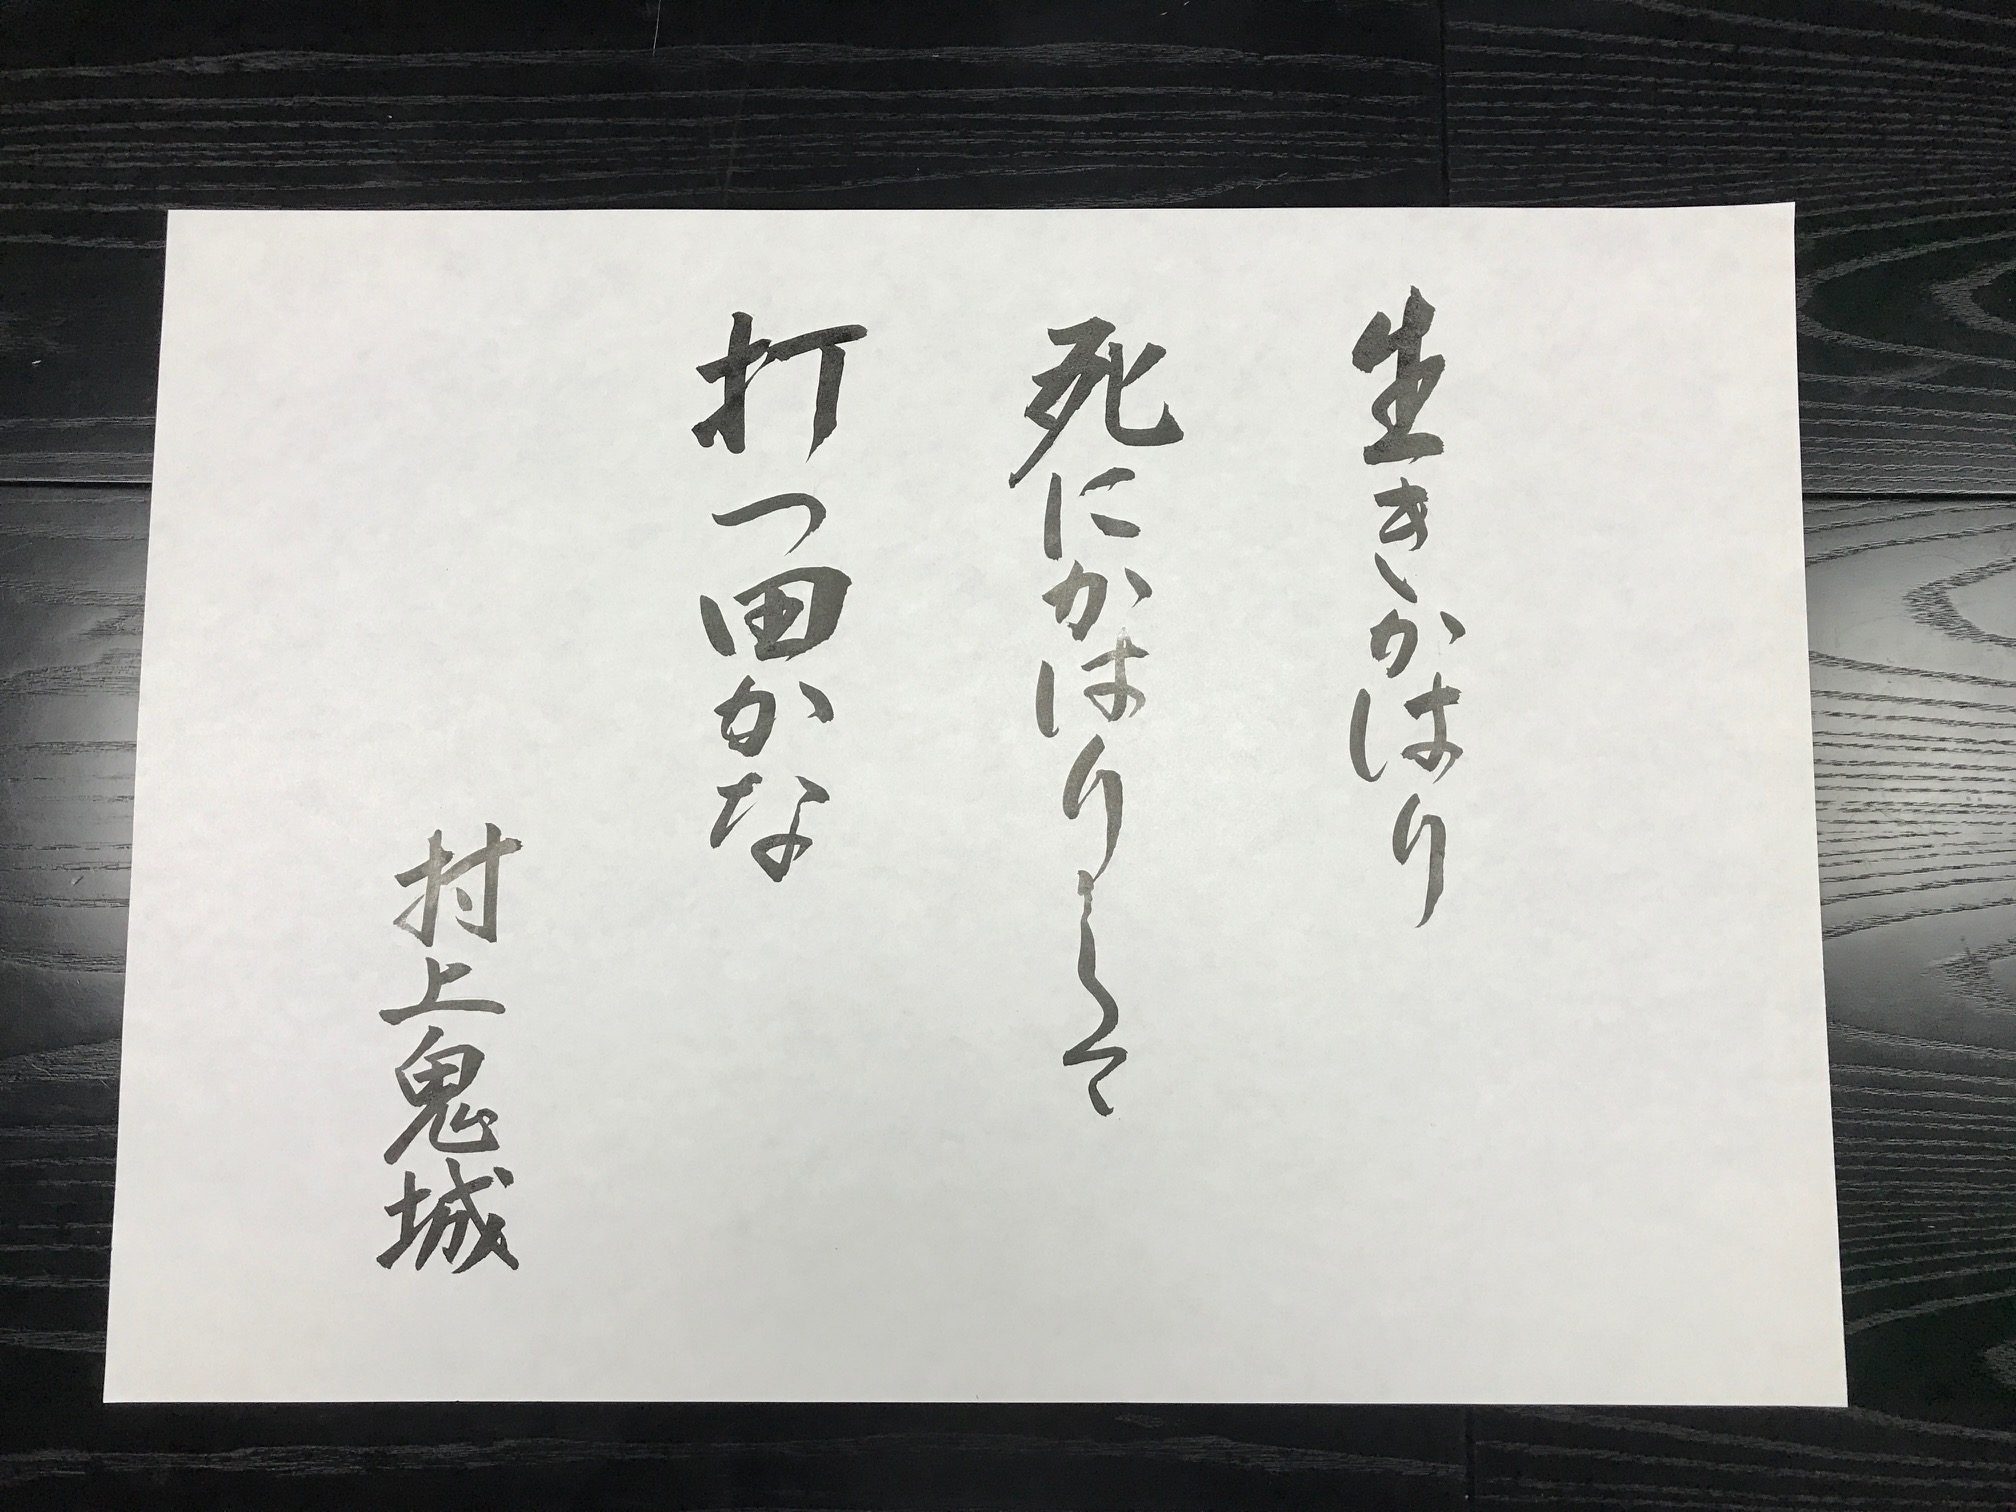 生きかはり
死にかはりして
打つ田かな
村上鬼城